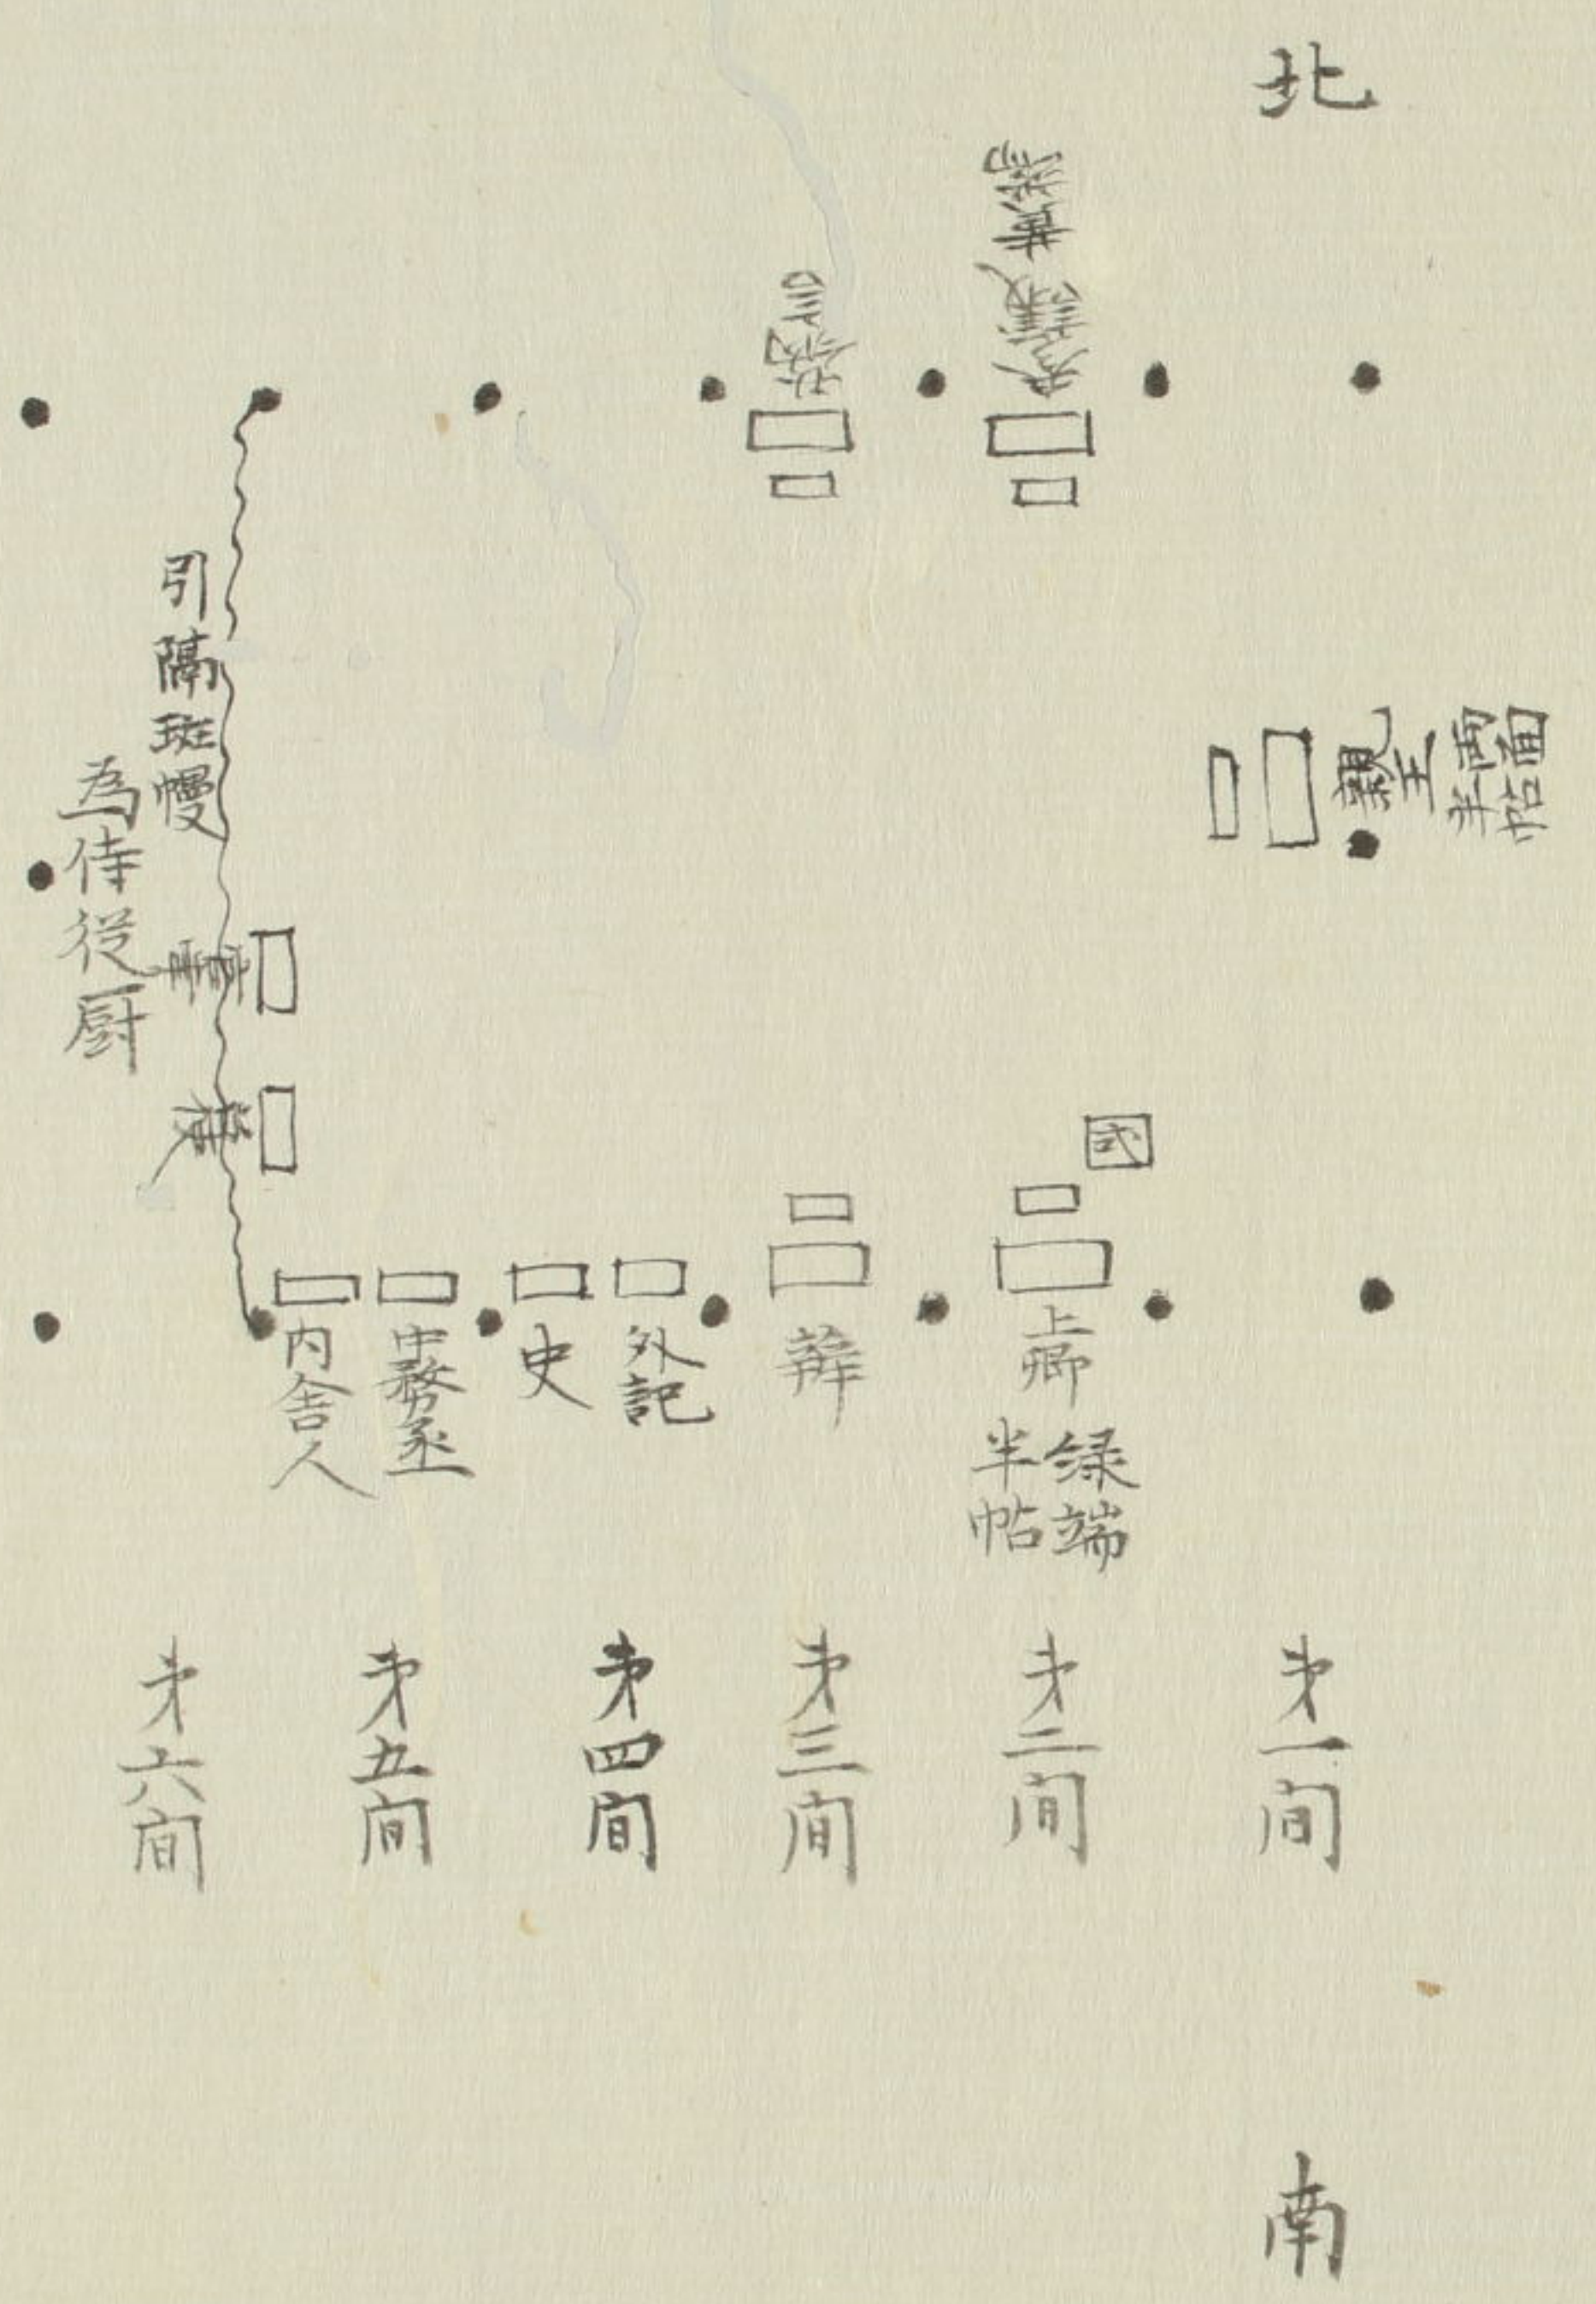 北
参議黄端
納言
親王
両面
半帖
式
上卿
緑端
半帖
辨
外記
史
中務丞
内舎人
引隔斑幔
為侍従厨
第一間
第二間
第三間
第四間
第五間
第六間
南